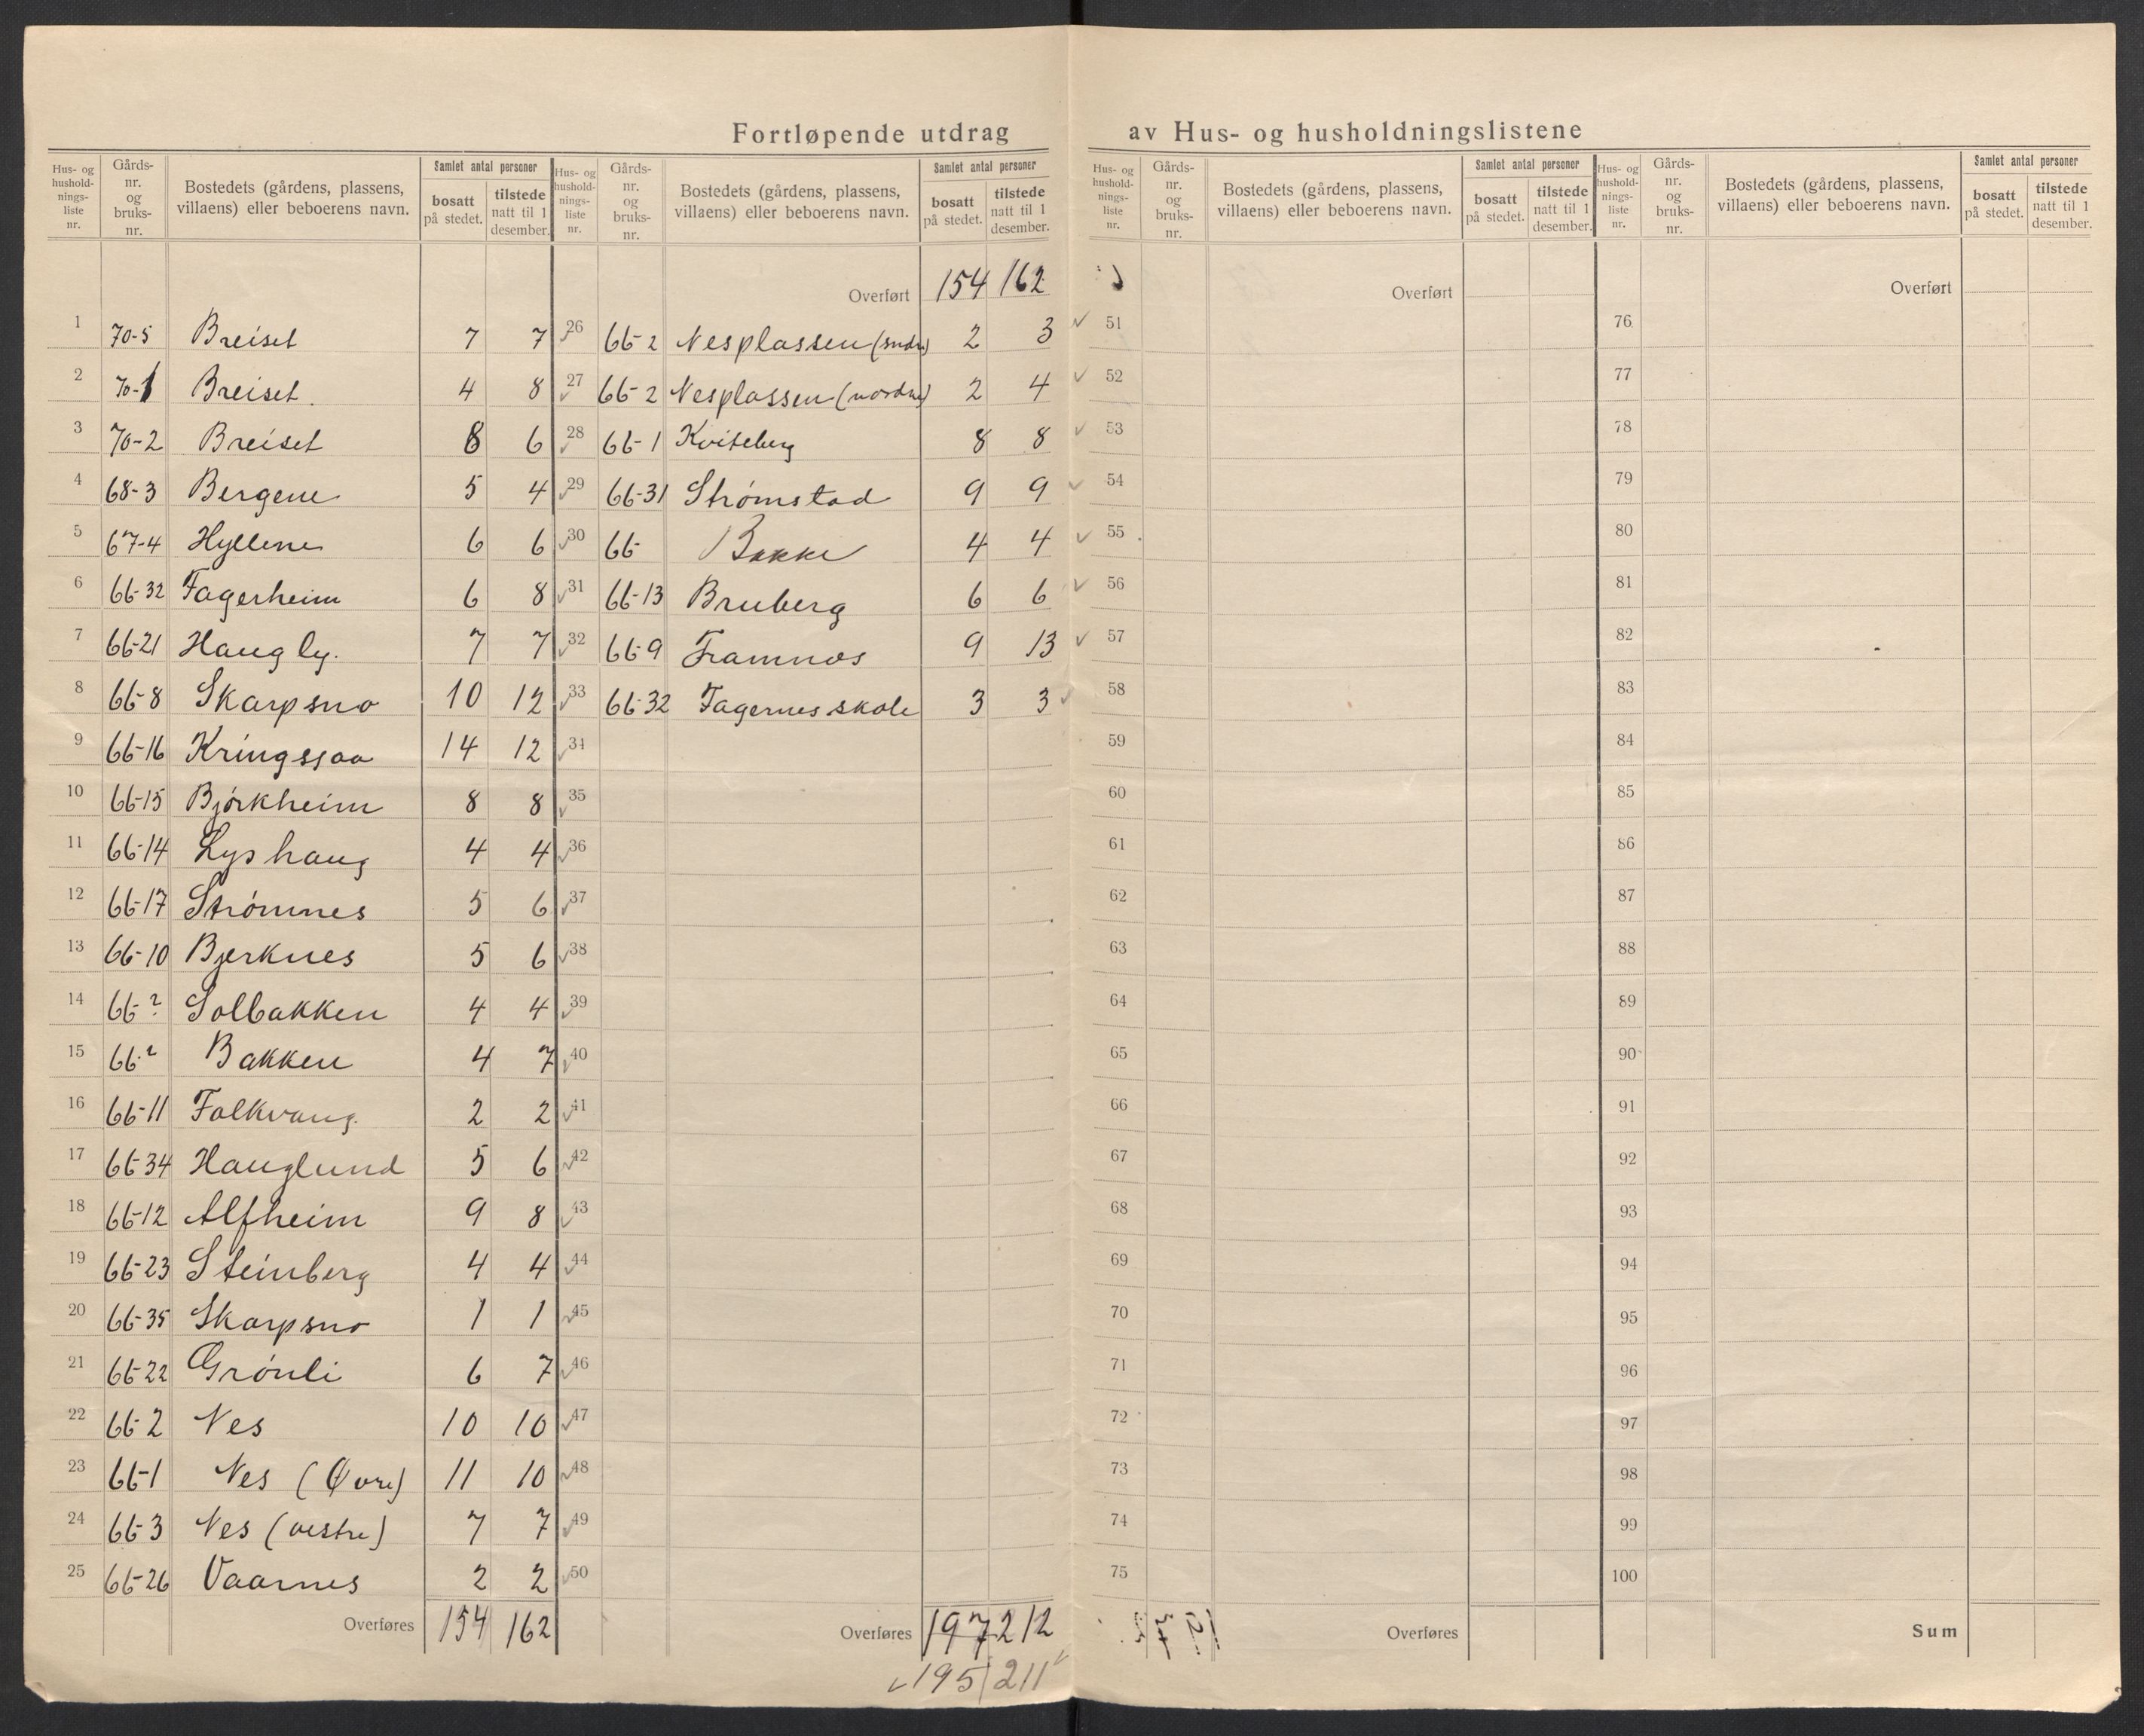 Fortløpende utdrag av Hus- og husholdningslistene
Hus- og hushold-nings-liste nr. Gårds-nr. og bruks-nr. Bostedets (gårdens, plassens, villaens) eller beboerens navn. Samlet antal personer bosatt på stedet. tilstede natt til 1 desember.
1 70-5 Breiset 7 7
2 70-1 Breiset. 4 8
3 70-2 Breiset 8 6
4 68-3 Bergene 5 4
5 67-4 Hyllene 6 6
6 66-32 Fagerheim 6 8
7 66-21 Haugly. 7 7
8 66-8 Skarpsno 10 12
9 66-16 Kringsjaa 14 12
10 66-15 Bjørkheim 8 8
11 66-14 Lyshaug 4 4
12 66-17 Strømnes 5 6
13 66-10 Bjerknes 5 6
14 66-? Solbakken 4 4
15 66-? Bakken 4 7
16 66-11 Folkvang. 2 2
17 66-34 Hauglund 5 6
18 66-12 Alfheim 9 8
19 66-23 Steinberg 4 4
20 66-35 Skarpsno 1 1
21 66-22 Grønli 6 7
22 66-2 Nes 10 10
23 66-1 Nes (Øvre) 11 10
24 66-3 Nes (vestre) 7 7
25 66-26 Vaarnes 2 2
Overføres 154 162
Hus- og hushold-nings-liste nr. Gårds-nr. og bruks-nr. Bostedets (gårdens, plassens, villaens) eller beboerens navn. Samlet antal personer bosatt på stedet. tilstede natt til 1 desember.
Overført 154 162
26 66-2 Nesplassen (sndr) 2 3
27 66-2 Nesplassen (nordre) 2 4
28 66-1 Kviteberg 8 8
29 66-31 Strømstad 9 9
30 66- Bakke 4 4
31 66-13 Bruberg 6 6
32 66-9 Framnes 9 13
33 66-32 Fagernes skole 3 3
34
35
36
37
38
39
40
41
42
43
44
45
46
47
48
49
50
Overføres 197 212
195 211
Hus- og hushold-nings-liste nr. Gårds-nr. og bruks-nr. Bostedets (gårdens, plassens, villaens) eller beboerens navn. Samlet antal personer bosatt på stedet. tilstede natt til 1 desember.
Overført
51
52
53
54
55
56
57
58
59
60
61
62
63
64
65
66
67
68
69
70
71
72
73
74
75
Overføres
Hus- og hushold-nings-liste nr. Gårds-nr. og bruks-nr. Bostedets (gårdens, plassens, villaens) eller beboerens navn. Samlet antal personer bosatt på stedet. tilstede natt til 1 desember.
Overført
76
77
78
79
80
81
82
83
84
85
86
87
88
89
90
91
92
93
94
95
96
97
98
99
100
Sum